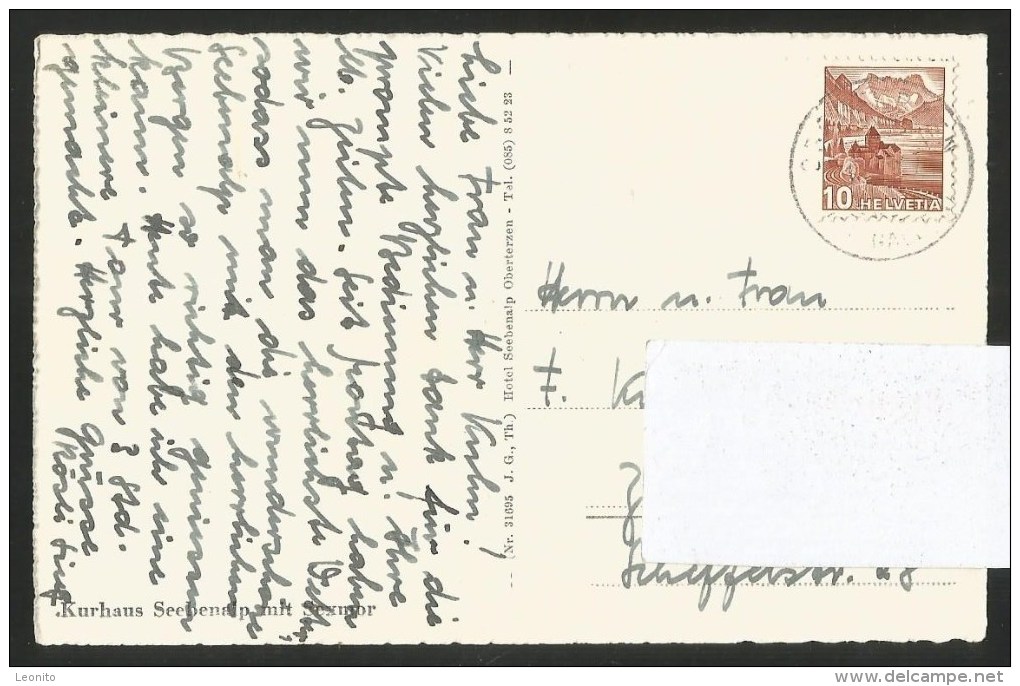 Liebe Frau u. Herr Kuhn!
Vielen herzlichen Dank für die
prompte Bedienung u. Ihre
lb. Zeilen. Seit Freitag haben
wir nun das herrlichste Wetter,
sodass man die wunderschöne
Seebenalp mit den herrlichen
Bergen so richtig geniessen
kann. Heute habe ich eine
kleinere Tour von 3 Std.
gemacht. Herzliche Grüsse
Rösli
Kurhaus Seebenalp mit Sexmor
(Nr. 31695 J. G., Th.) Hotel Seebenalp Oberterzen - Tel. (085) 8 52 23
10 HELVETIA
Herrn u. Frau
F.
28
Leonito
www.delcampe.net